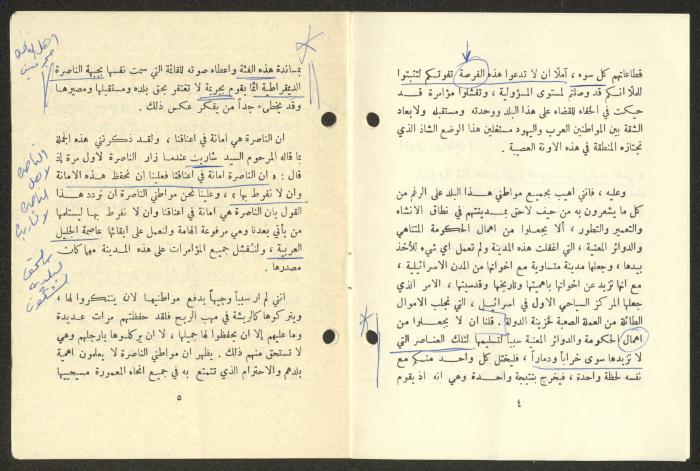 قطاعاتهم كل سوء ، آملاً ان لا تدعوا هذه الفرصة تفوتكم لتثبتوا
للملا انكم قد وصلتم لمستوى المسؤولية ، وتفشلوا مؤامرة قد
حيكت في الخفاء للقضاء على هذا البلد ووحدته ومستقبله ولابعاد
الشقة بين المواطنين العرب واليهود مستغلين هذا الوضع الشاذ الذي
تجتازه المنطقة في هذه الاونة العصيبة .
وعليه ، فانني اهيب بجميع مواطني هذا البلد على الرغم من
كل ما يشعرون به من حيف لاحق بمدينتهم في نطاق الانشاء
والتعمير والتطور ، ألا يجعلوا من اهمال الحكومة المتناهي
والدوائر المعنية ، التي اغفلت هذه المدينة ولم تعمل اي شيء للأخذ
بيدها ، وجعلها مدينة متساوية مع اخواتها من المدن الاسرائيلية ،
مع انها تزيد عن اخواتها باهميتها وتاريخها وقدسيتها ، الامر الذي
جعلها المركز السياحي الاول في اسرائيل ، التي تجلب الاموال
الطائلة من العملة الصعبة لخزينة الدولة . قلنا ان لا يجعلوا من
اهمال الحكومة والدوائر المعنية سبباً لتسليمها لتلك العناصر التي
لا تزيدها سوى خراباً ودماراً ، فليختل كل واحد منكم مع
نفسه لحظة واحدة ، فيخرج بنتيجة واحدة وهي انه اذ يقوم
٤
بمساندة هذه الفئة واعطاء صوته للقائمة التي سمت نفسها بجبهة الناصرة
الديمقراطية انما يقوم بجريمة لا تغتفر بحق بلده ومستقبلها ومصيرها
وقد يخطىء جداً من يفكر عكس ذلك .
ان الناصرة هي امانة في اعناقنا ، ولقد ذكرتني هذه الجملة
بما قاله المرحوم السيد شاريت عندما زار الناصرة لاول مرة إذ
قال : « ان الناصرة هي امانة في اعناقنا فعلينا ان نحفظ هذه الامانة
وان لا نفرط بها » ، وعلينا نحن مواطني الناصرة ان نردد هذا
القول بان الناصرة هي امانة في اعناقنا وان لا نفرط بها ليستلمها
من يأتي بعدنا وهي مرفوعة الهامة ولنعمل على ابقائها عاصمة الجليل
العربية ، ولنفشل جميع المؤامرات على هذه المدينة مهما كان
مصدرها .
انني لم ار سبباً وجيهاً يدفع مواطنيها لان يتنكروا لها ،
ويتركوها كالريشة في مهب الريح فلقد حفظتهم مرات عديدة
وما عليهم إلا ان يحفظوا لها جميلها ، لا ان يركلوها بارجلهم وهي
لا تستحق منهم ذلك . يظهر ان مواطني الناصرة لا يعلمون اهمية
بلدهم والاحترام الذي تتمتع به في جميع انحاء المعمورة مسيحييها
٥